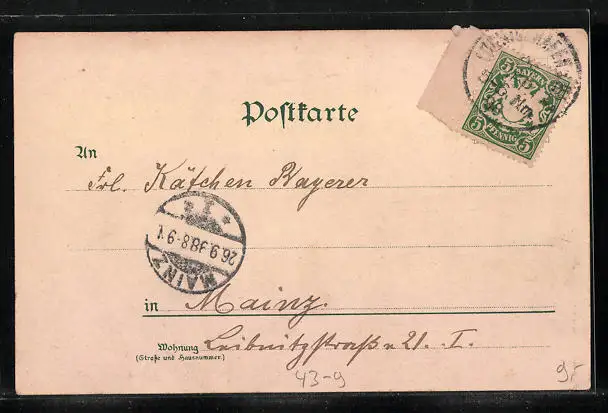 LUDWIGSHAFEN
5 BAYERN 5
5 PFENNIG 5
Postkarte
An
Frl. Käthchen Bayerer
MAINZ
26.9.98.8-9V.
in Mainz.
Wohnung Leibnitzstraße 21. I.
(Straße und Hausnummer.)
43-9